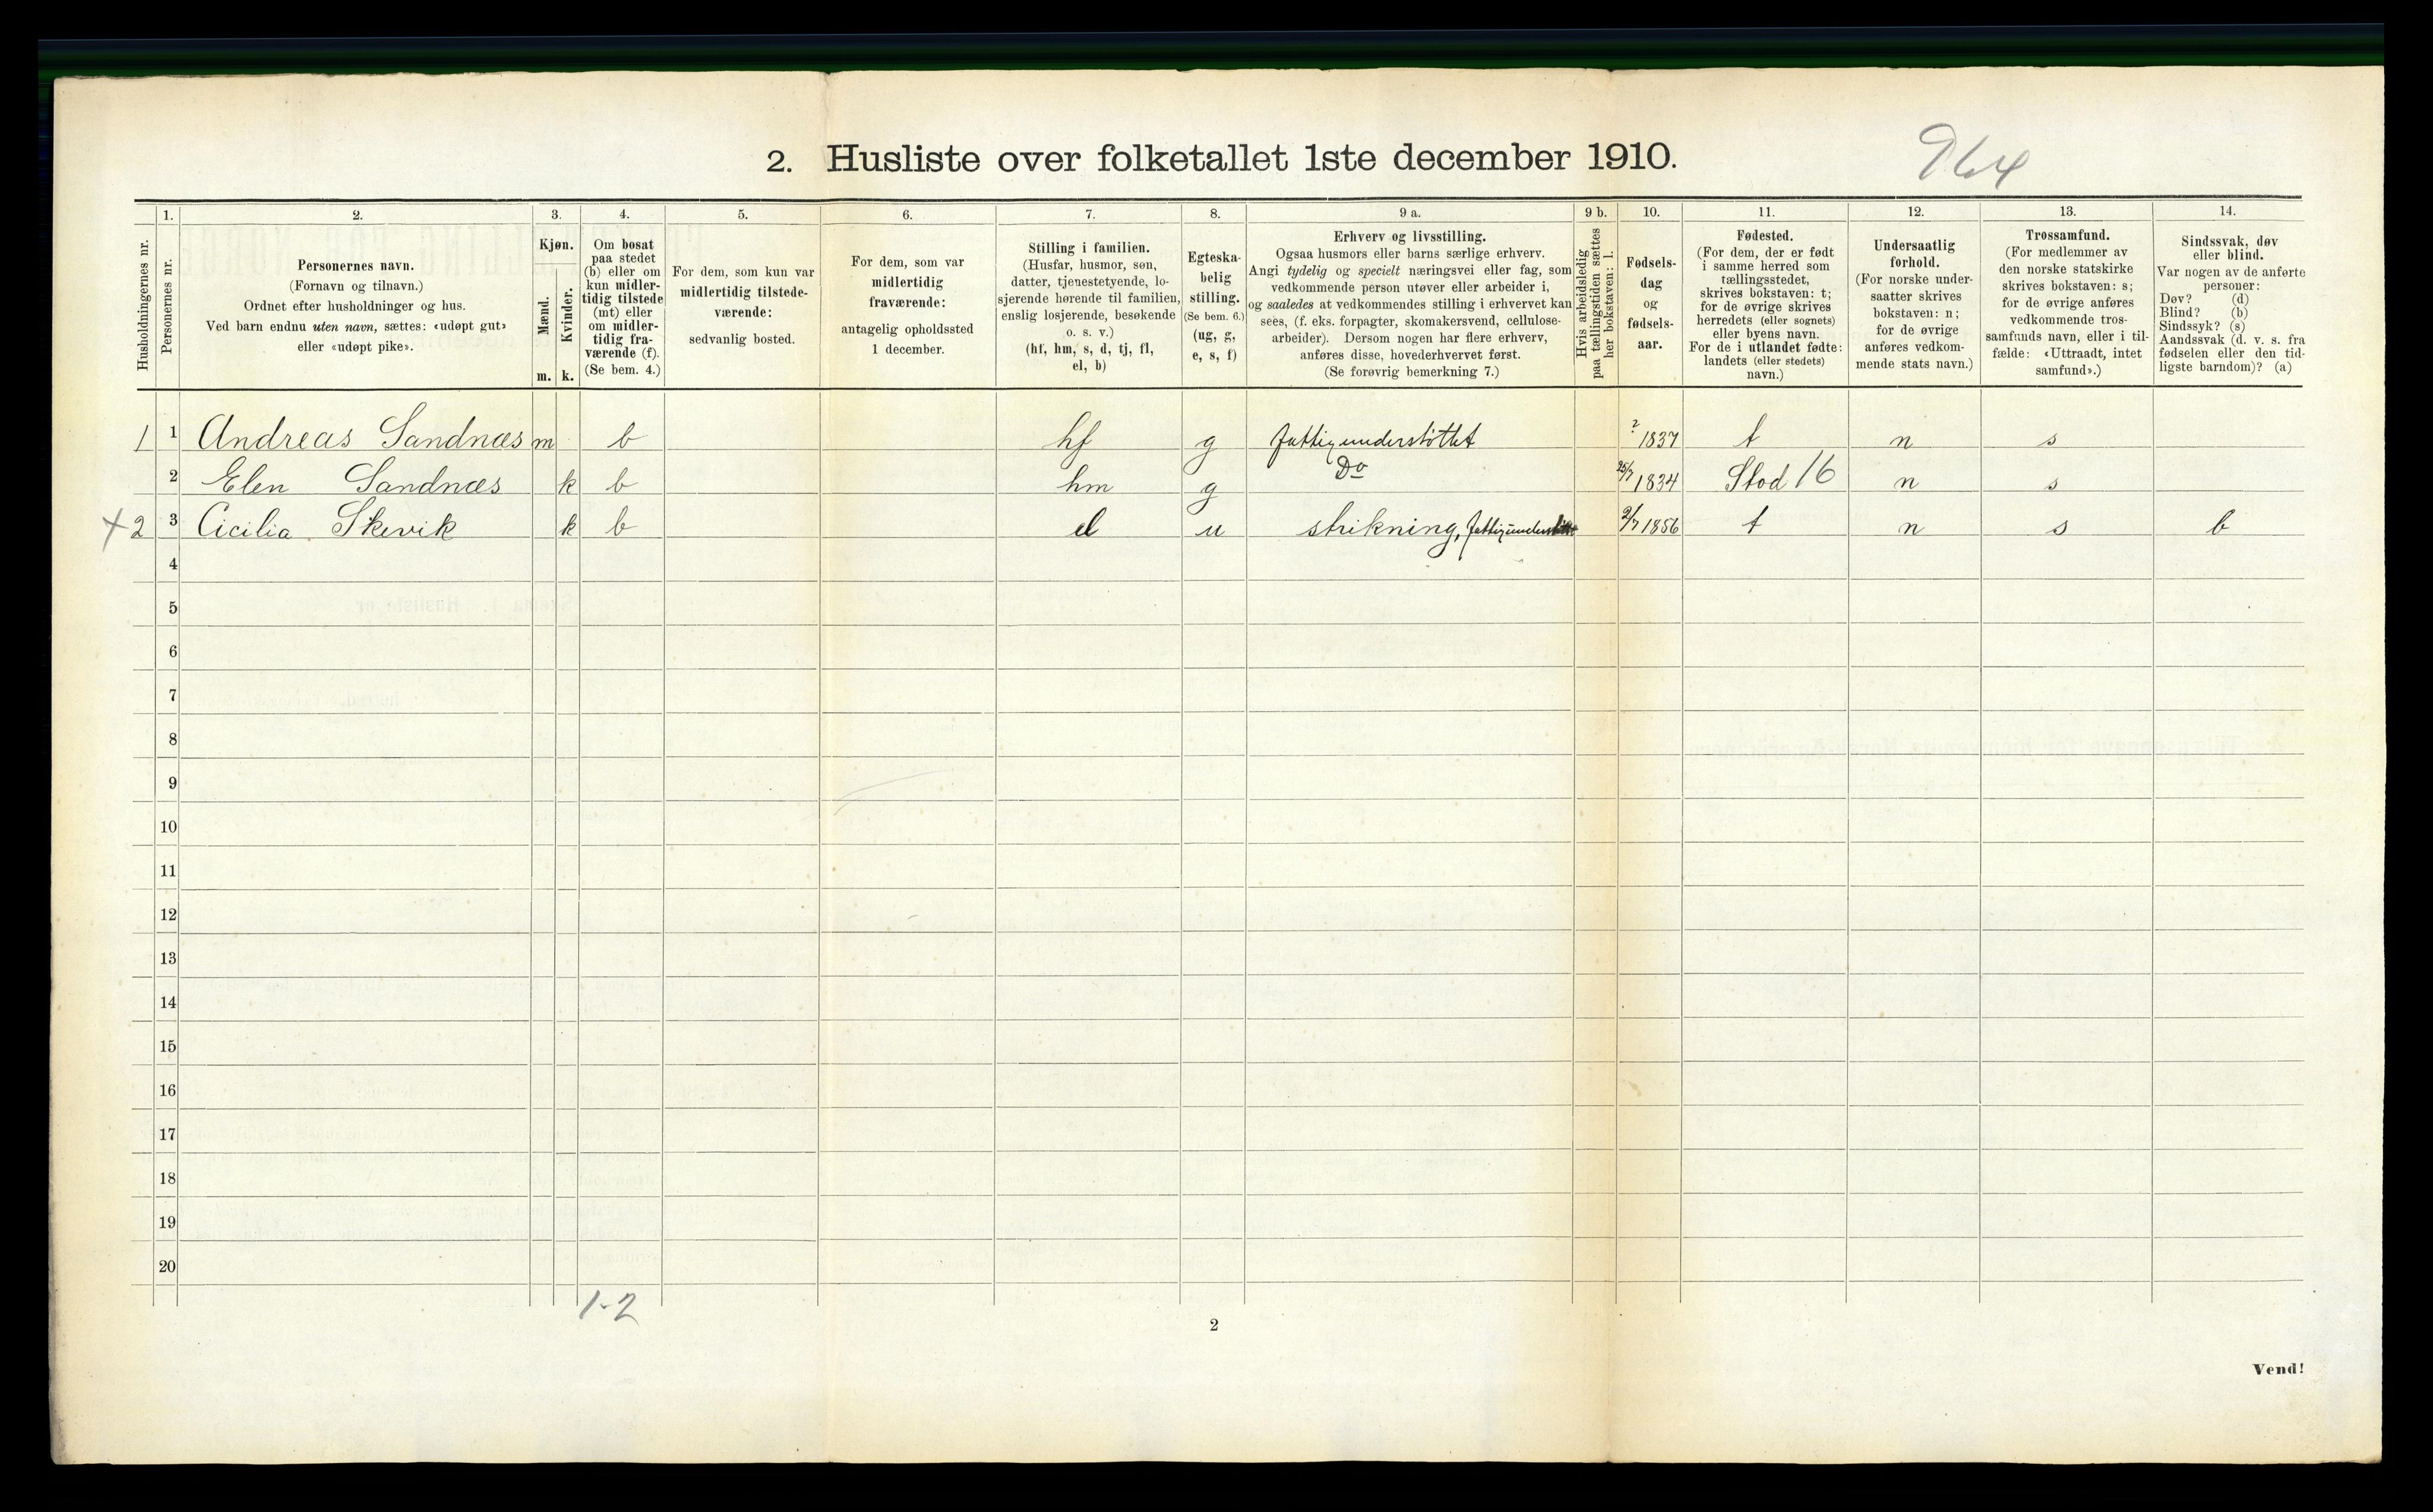 2. Husliste over folketallet 1ste december 1910.
964
1. 2. 3. 4. 5. 6. 7. 8. 9 a. 9 b. 10. 11. 12. 13. 14.
Husholdningernes nr.
Personernes nr.
Personernes navn.
(Fornavn og tilnavn.)
Ordnet efter husholdninger og hus.
Ved barn endnu uten navn, sættes: «udøpt gut»
eller «udøpt pike».
Kjøn.
Mænd.
Kvinder.
m. k.
Om bosat
paa stedet
(b) eller om
kun midler-
tidig tilstede
(mt) eller
om midler-
tidig fra-
værende (f).
(Se bem. 4.)
For dem, som kun var
midlertidig tilstede-
værende:
sedvanlig bosted.
For dem, som var
midlertidig
fraværende:
antagelig opholdssted
1 december.
Stilling i familien.
(Husfar, husmor, søn,
datter, tjenestetyende, lo-
sjerende hørende til familien,
enslig losjerende, besøkende
o. s. v.)
(hf, hm, s, d, tj, fl,
el, b)
Egteska-
belig
stilling.
(Se bem. 6.)
(ug, g,
e, s, f)
Erhverv og livsstilling.
Ogsaa husmors eller barns særlige erhverv.
Angi tydelig og specielt næringsvei eller fag, som
vedkommende person utøver eller arbeider i,
og saaledes at vedkommendes stilling i erhvervet kan
sees, (f. eks. forpagter, skomakersvend, cellulose-
arbeider). Dersom nogen har flere erhverv,
anføres disse, hovederhvervet først.
(Se forøvrig bemerkning 7.)
Hvis arbeidsledig
paa tællingstiden sættes
her bokstaven: l.
Fødsels-
dag
og
fødsels-
aar.
Fødested.
(For dem, der er født
i samme herred som
tællingsstedet,
skrives bokstaven: t;
for de øvrige skrives
herredets (eller sognets)
eller byens navn.
For de i utlandet fødte:
landets (eller stedets)
navn.)
Undersaatlig
forhold.
(For norske under-
saatter skrives
bokstaven: n;
for de øvrige
anføres vedkom-
mende stats navn.)
Trossamfund.
(For medlemmer av
den norske statskirke
skrives bokstaven: s;
for de øvrige anføres
vedkommende tros-
samfunds navn, eller i til-
fælde: «Uttraadt, intet
samfund».)
Sindssvak, døv
eller blind.
Var nogen av de anførte
personer:
Døv? (d)
Blind? (b)
Sindssyk? (s)
Aandssvak (d. v. s. fra
fødselen eller den tid-
ligste barndom)? (a)
1 1 Andreas Sandnæs m b hf g fattigunderstöttet ? 1837 t n s
2 Elen Sandnæs k b hm g Do 25/7 1834 Stod 16 n s
+ 2 3 Cicilia Skevik k b el u strikning, fattigunderstött 2/7 1856 t n s b
4
5
6
7
8
9
10
11
12
13
14
15
16
17
18
19
20
1-2
2
Vend!